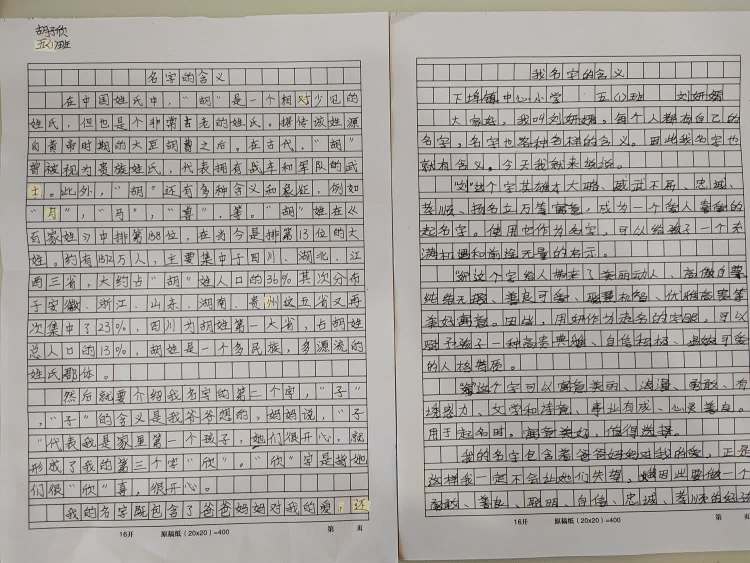 胡子欣
五(1)班
名字的含义
在中国姓氏中，“胡”是一个相对少见的
姓氏，但也是个非常古老的姓氏。据传该姓源
自黄帝时期的大臣胡曹之后。在古代，“胡”
曾被视为贵族姓氏，代表拥有战车和军队的武
士。此外，“胡”还有多种含义和象征，例如
“月”，“马”，“喜”，等。“胡”姓在《
百家姓》中排第158位，在当今是排第13位的大
姓。约有1512万人，主要集中于四川、湖北、江
西三省，大约占“胡”姓人口的36%其次分布
于安徽、浙江、山东、湖南、贵州这五省又再
次集中了23%，四川为胡姓第一大省，占胡姓
总人口的13%，胡姓是一个多民族，多源流的
姓氏群体。
然后就要介绍我名字的第二个字，“子”
，“子”的含义是我爷爷想的，妈妈说，“子
”代表我是家里第一个孩子，她们很开心，就
形成了我的第三个字“欣”。“欣”字是指她
们很“欣”喜，很开心。
我的名字既包含了爸爸妈妈对我的爱，还
16开 原稿纸（20x20）=400 第 页
我名字的含义
下埠镇中心小学 五(1)班 刘妍嫣
大家好，我叫刘妍嫣，每个人都有自己的
名字，名字也各种各样的含义。因此我名字也
就有含义。今天我就来说说。
“刘”这个字其雄才大略、威武不屈、忠诚、
孝顺、扬名立万等寓意，成为一个受人喜爱的
起名字。使用它作为名字，可以给孩子一个充
满机遇和前途无量的启示。
“妍”这个字给人带来了美丽动人、高傲自尊
纯洁无瑕、善良可爱、聪慧机智、优雅高贵等
美好寓意。因此，用妍作为起名的字眼，可以
赋予孩子一种高贵典雅、自信积极、温婉可爱
的人格特质。
“嫣”这个字可以寓意美丽、浪漫、勇敢、有
魄力、文学和诗意、事业有成、心灵善良。
用于起名时，寓意美好，值得选择。
我的名字包含着爸爸妈妈对我的爱，正是
这样我一定不会让她们失望，因此要做一个
勇敢、善良、聪明、自信、忠诚、孝顺的好孩
16开 原稿纸（20x20）=400 第